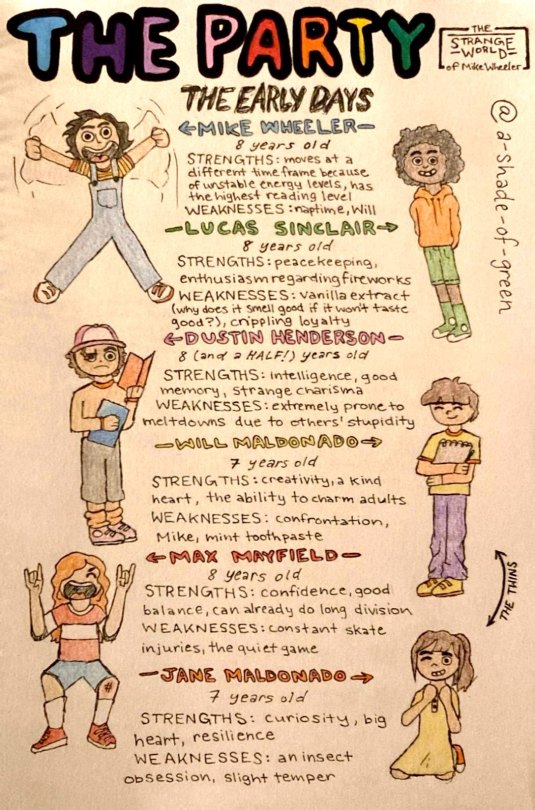 THE PARTY
THE
STRANGE
WORLD
of Mike Wheeler
THE EARLY DAYS
@a-shade-of-green
←MIKE WHEELER—
8 years old
STRENGTHS: moves at a
different time frame because
of unstable energy levels, has
the highest reading level
WEAKNESSES: naptime, Will
—LUCAS SINCLAIR→
8 years old
STRENGTHS: peacekeeping,
enthusiasm regarding fireworks
WEAKNESSES: vanilla extract
(why does it smell good if it won't taste
good?), crippling loyalty
←DUSTIN HENDERSON—
8 (and a HALF!) years old
STRENGTHS: intelligence, good
memory, strange charisma
WEAKNESSES: extremely prone to
meltdowns due to others' stupidity
—WILL MALDONADO→
7 years old
STRENGTHS: creativity, a kind
heart, the ability to charm adults
WEAKNESSES: confrontation,
Mike, mint toothpaste
←MAX MAYFIELD—
8 years old
STRENGTHS: confidence, good
balance, can already do long division
WEAKNESSES: constant skate
injuries, the quiet game
THE TWINS
—JANE MALDONADO→
7 years old
STRENGTHS: curiosity, big
heart, resilience
WEAKNESSES: an insect
obsession, slight temper